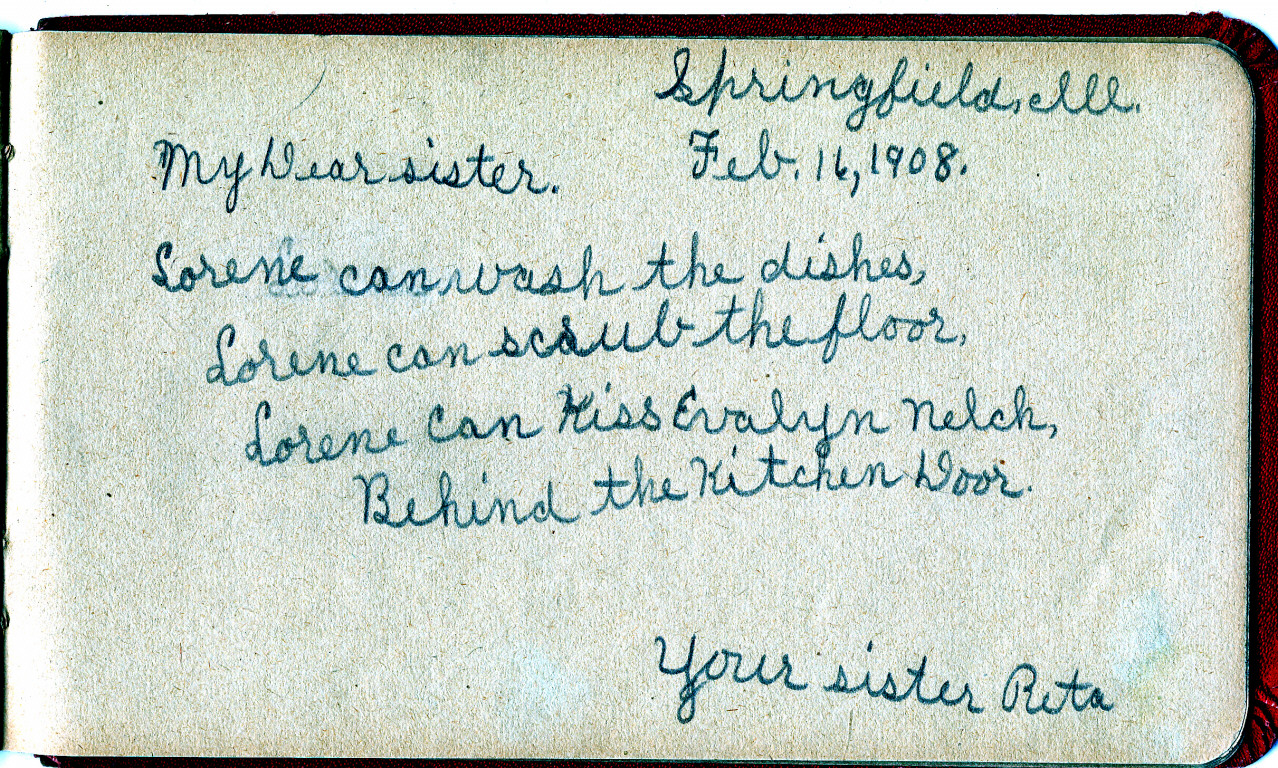 Springfield, Ill.
Feb. 16, 1908.
My Dear sister.
Lorene can wash the dishes,
Lorene can scrub the floor,
Lorene Can Kiss Evalyn Nelch,
Behind the Kitchen Door.
Your sister Reta